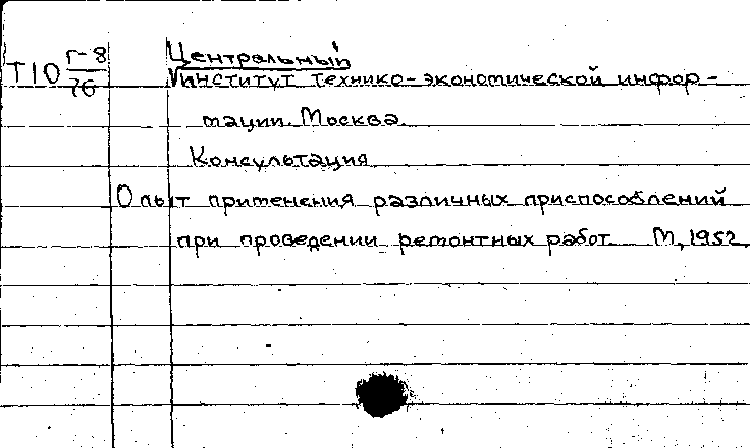 Т10 Г-8/76
Центральный
институт технико-экономической инфор-
мации. Москва.
Консультация
Опыт применения различных приспособлений
при проведении ремонтных работ. М., 1952